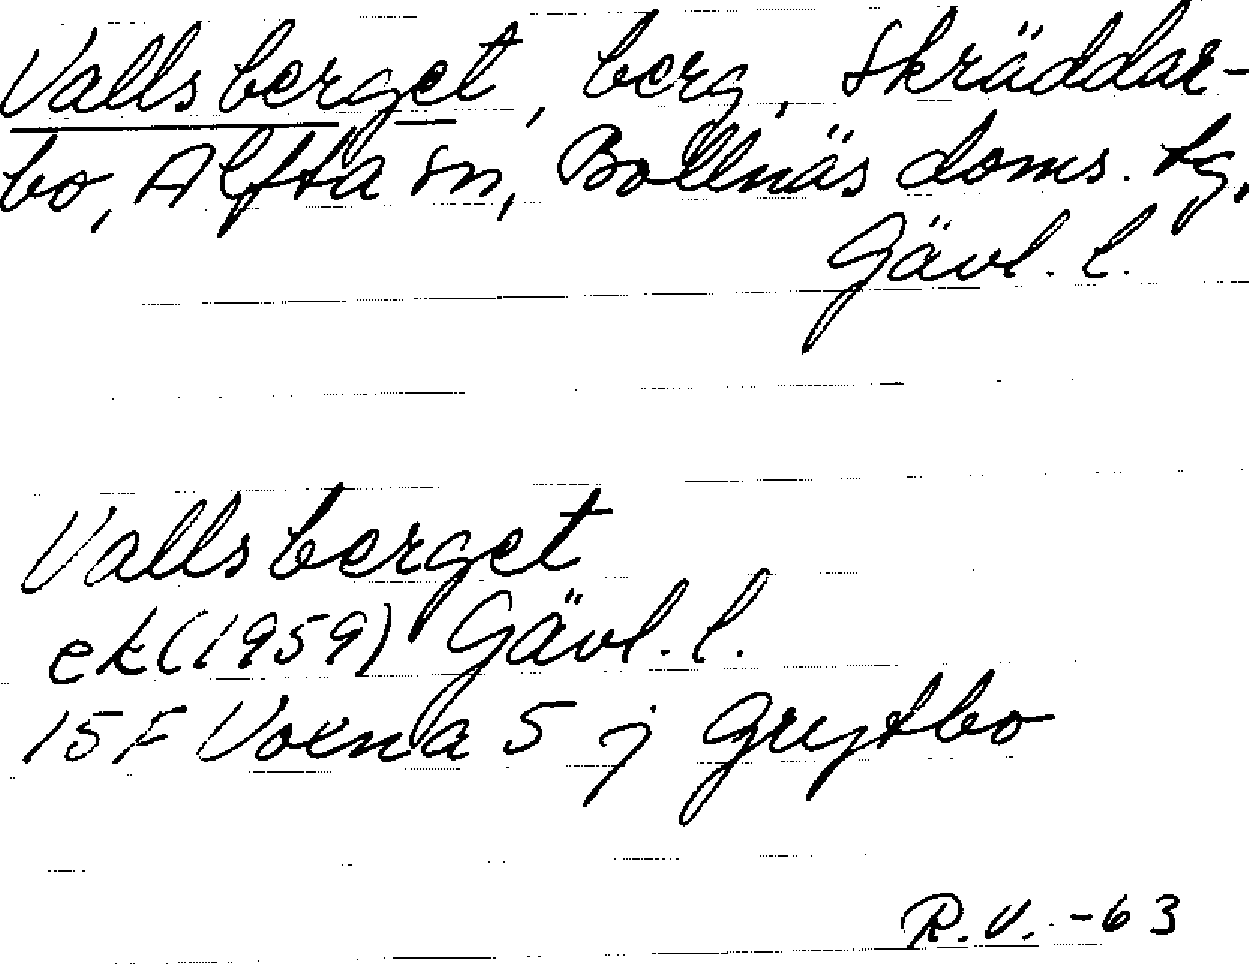 Vallsberget, berg, Skräddar-
bo, Alfta sn, Bollnäs doms. tg,
Gävl. l.
Vallsberget
ek (1959) Gävl. l.
15 F Voxna 5 j Grytbo
R.V. -63